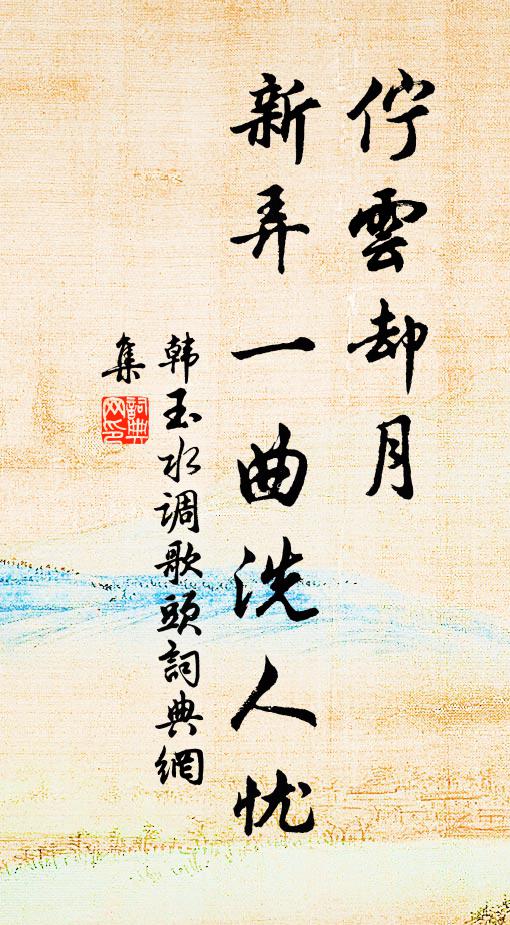 佇雲却月
新弄一曲洗人忧
韩玉水调歌頭詞典網
集
詞典
网印